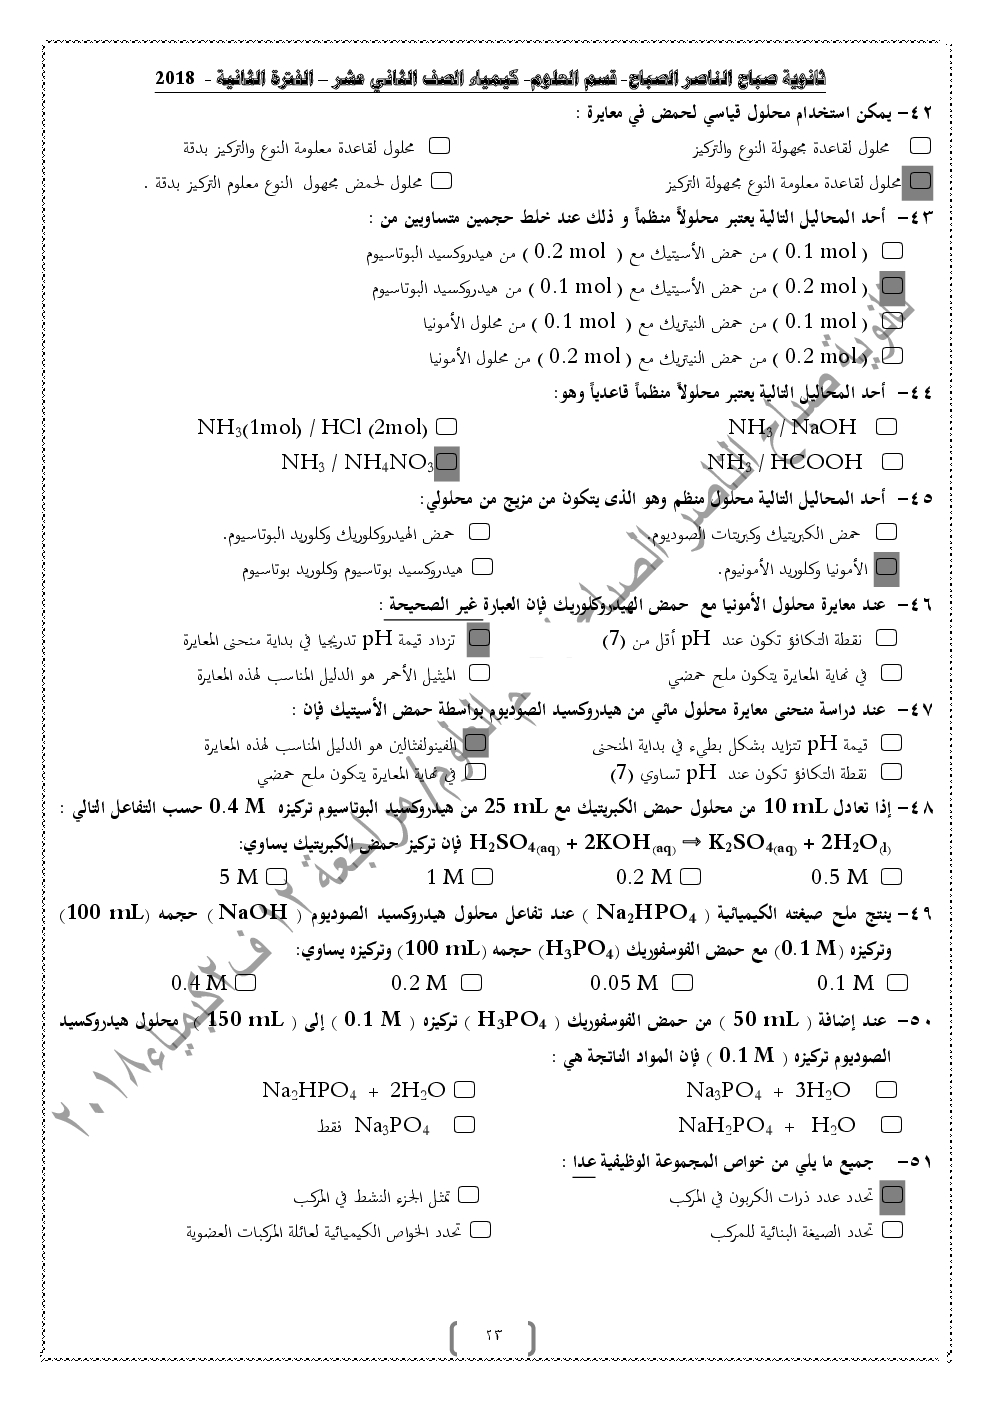 ثانوية صباح الناصر الصباح- قسم العلوم- كيمياء الصف الثاني عشر – الفترة الثانية - 2018
٤٢- يمكن استخدام محلول قياسي لحمض في معايرة :
محلول لقاعدة مجهولة النوع والتركيز    محلول لقاعدة معلومة النوع والتركيز بدقة
محلول لقاعدة معلومة النوع مجهولة التركيز    محلول لحمض مجهول النوع معلوم التركيز بدقة .
٤٣- أحد المحاليل التالية يعتبر محلولاً منظماً و ذلك عند خلط حجمين متساويين من :
( 0.1 mol ) من حمض الأسيتيك مع ( 0.2 mol ) من هيدروكسيد البوتاسيوم
( 0.2 mol ) من حمض الأسيتيك مع ( 0.1 mol ) من هيدروكسيد البوتاسيوم
( 0.1 mol ) من حمض النيتريك مع ( 0.1 mol ) من محلول الأمونيا
( 0.2 mol ) من حمض النيتريك مع ( 0.2 mol ) من محلول الأمونيا
٤٤- أحد المحاليل التالية يعتبر محلولاً منظماً قاعدياً وهو:
NH₃ / NaOH    NH₃(1mol) / HCl (2mol)
NH₃ / HCOOH    NH₃ / NH₄NO₃
٤٥- أحد المحاليل التالية محلول منظم وهو الذى يتكون من مزيج من محلولي:
حمض الكبريتيك وكبريتات الصوديوم.    حمض الهيدروكلوريك وكلوريد البوتاسيوم.
الأمونيا وكلوريد الأمونيوم.    هيدروكسيد بوتاسيوم وكلوريد بوتاسيوم
٤٦- عند معايرة محلول الأمونيا مع حمض الهيدروكلوريك فإن العبارة غير الصحيحة :
نقطة التكافؤ تكون عند pH أقل من (7)    تزداد قيمة pH تدريجيا في بداية منحنى المعايرة
في نهاية المعايرة يتكون ملح حمضي    الميثيل الأحمر هو الدليل المناسب لهذه المعايرة
٤٧- عند دراسة منحنى معايرة محلول مائي من هيدروكسيد الصوديوم بواسطة حمض الأسيتيك فإن :
قيمة pH تتزايد بشكل بطيء في بداية المنحنى    الفينولفثالين هو الدليل المناسب لهذه المعايرة
نقطة التكافؤ تكون عند pH تساوي (7)    في نهاية المعايرة يتكون ملح حمضي
٤٨- إذا تعادل 10 mL من محلول حمض الكبريتيك مع 25 mL من هيدروكسيد البوتاسيوم تركيزه 0.4 M حسب التفاعل التالي :
H₂SO₄(aq) + 2KOH(aq) ⇒ K₂SO₄(aq) + 2H₂O(l) فإن تركيز حمض الكبريتيك يساوي:
0.5 M    0.2 M    1 M    5 M
٤٩- ينتج ملح صيغته الكيميائية ( Na₂HPO₄ ) عند تفاعل محلول هيدروكسيد الصوديوم ( NaOH ) حجمه (100 mL)
وتركيزه (0.1 M) مع حمض الفوسفوريك (H₃PO₄) حجمه (100 mL) وتركيزه يساوي:
0.1 M    0.05 M    0.2 M    0.4 M
٥٠- عند إضافة ( 50 mL ) من حمض الفوسفوريك ( H₃PO₄ ) تركيزه ( 0.1 M ) إلى ( 150 mL ) محلول هيدروكسيد
الصوديوم تركيزه ( 0.1 M ) فإن المواد الناتجة هي :
Na₃PO₄ + 3H₂O    Na₂HPO₄ + 2H₂O
NaH₂PO₄ + H₂O    Na₃PO₄ فقط
٥١- جميع ما يلي من خواص المجموعة الوظيفية عدا :
تحدد عدد ذرات الكربون في المركب    تمثل الجزء النشط في المركب
تحدد الصيغة البنائية للمركب    تحدد الخواص الكيميائية لعائلة المركبات العضوية
٢٣